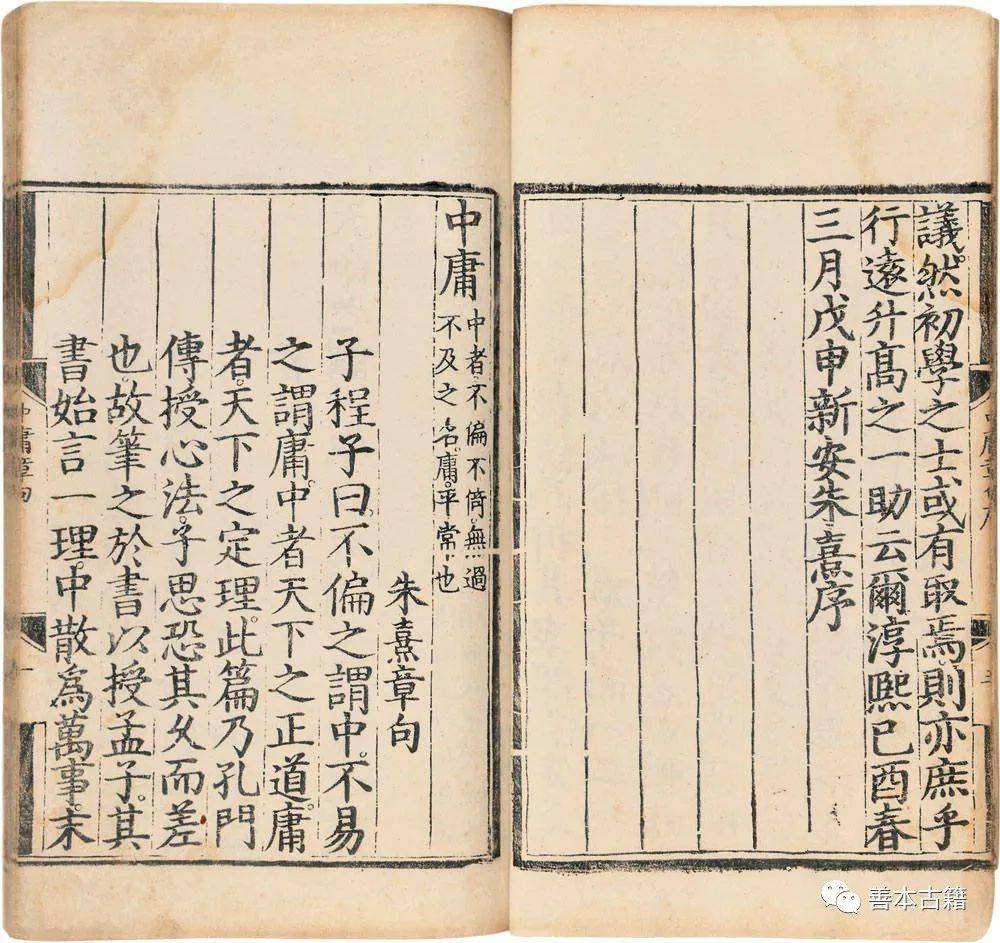 議。然初學之士或有取焉。則亦庶乎
行遠升高之一助云爾淳熙已酉春
三月戊申新安朱熹序
中庸
中者不偏不倚。無過
不及之名。庸。平常也
朱熹章句
子程子曰。不偏之謂中。不易
之謂庸。中者天下之正道。庸
者。天下之定理。此篇乃孔門
傳授心法。子思恐其久而差
也故筆之於書以授孟子。其
書始言一理。中散爲萬事。末
中庸章句
善本古籍